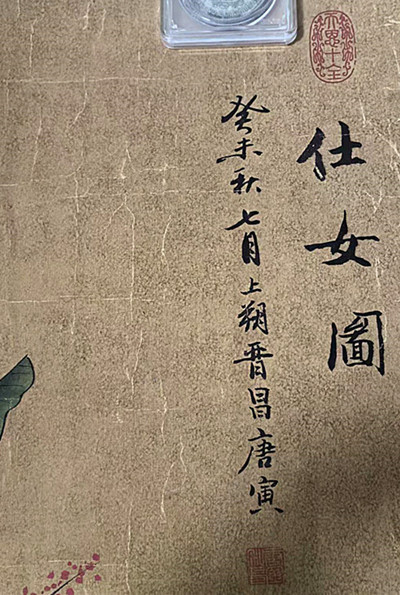 仕女圖
癸未秋七月上朔晋昌唐寅